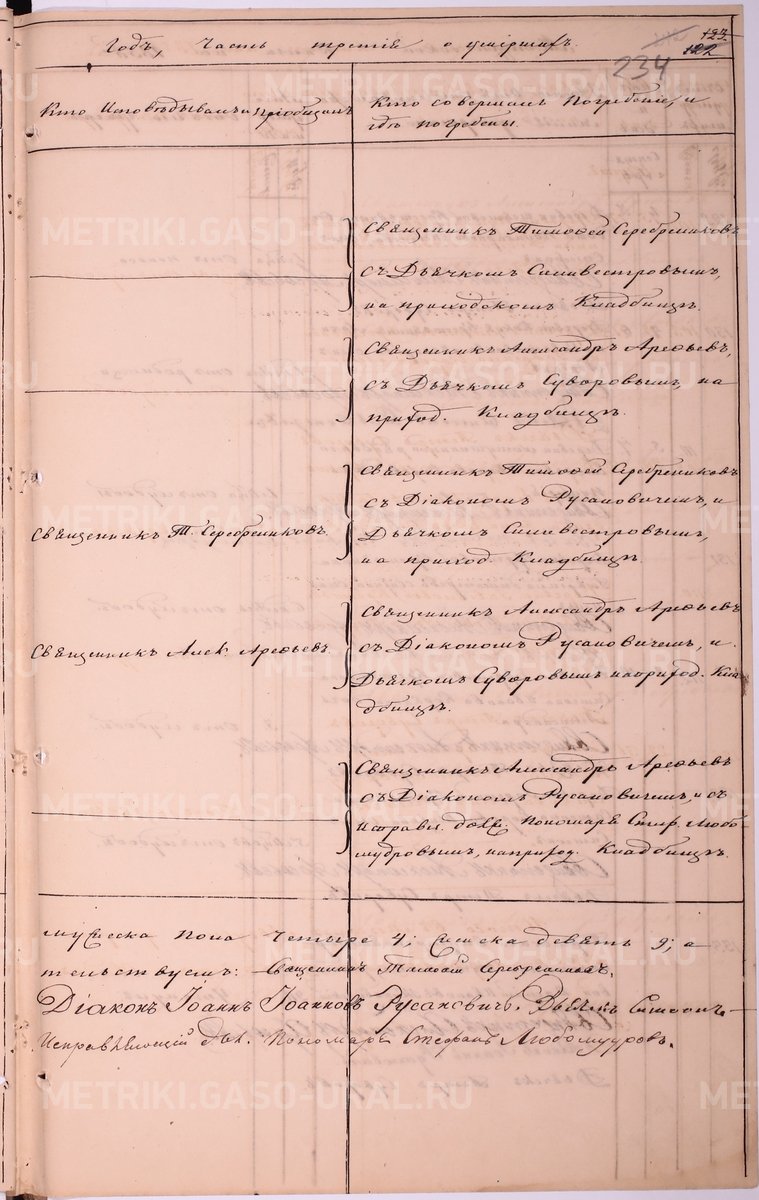 Годъ, Часть третія о умершихъ.
123
122
234
Кто Исповѣдывалъ и пріобщалъ
Кто совершалъ Погребеніе, и
гдѣ погребены.
Священникъ Тимофей Серебрениковъ
съ Дьячкомъ Сильвестровымъ,
на приходскомъ Кладбищѣ.
Священникъ Александръ Арефьевъ,
съ Дьячкомъ Суворовымъ, на
приход. Кладбищѣ.
Священникъ Т. Серебрениковъ.
Священникъ Тимофей Серебрениковъ
съ Діакономъ Русановичемъ, и
Дьячкомъ Сильвестровымъ,
на приход. Кладбищѣ.
Священникъ Алек. Арефьевъ.
Священникъ Александръ Арефьевъ
съ Діакономъ Русановичемъ, и
Дьячкомъ Суворовымъ на приход. Кла
дбищѣ.
Священникъ Александръ Арефьевъ
съ Діакономъ Русановичемъ, и съ
Исправл. долж. Пономаря Стеф. Любо
мудровымъ, на приход. Кладбищѣ.
мужеска пола Четыре 4; женска девять 9; а
тельствуемъ: Священникъ Тимофей Серебрениковъ.
Діаконъ Іоаннъ Іоанновъ Русановичъ. Дьячекъ
Исправляющій дол. Пономарь Стефанъ Любомудровъ.
METRIKI.GASO-URAL.RU
METRIKI.GASO-URAL.RU
METRIKI.GASO-URAL.RU
METRIKI.GASO-URAL.RU
METRIKI.GASO-URAL.RU
METRIKI.GASO-URAL.RU
METRIKI.GASO-URAL.RU
METRIKI.GASO-URAL.RU